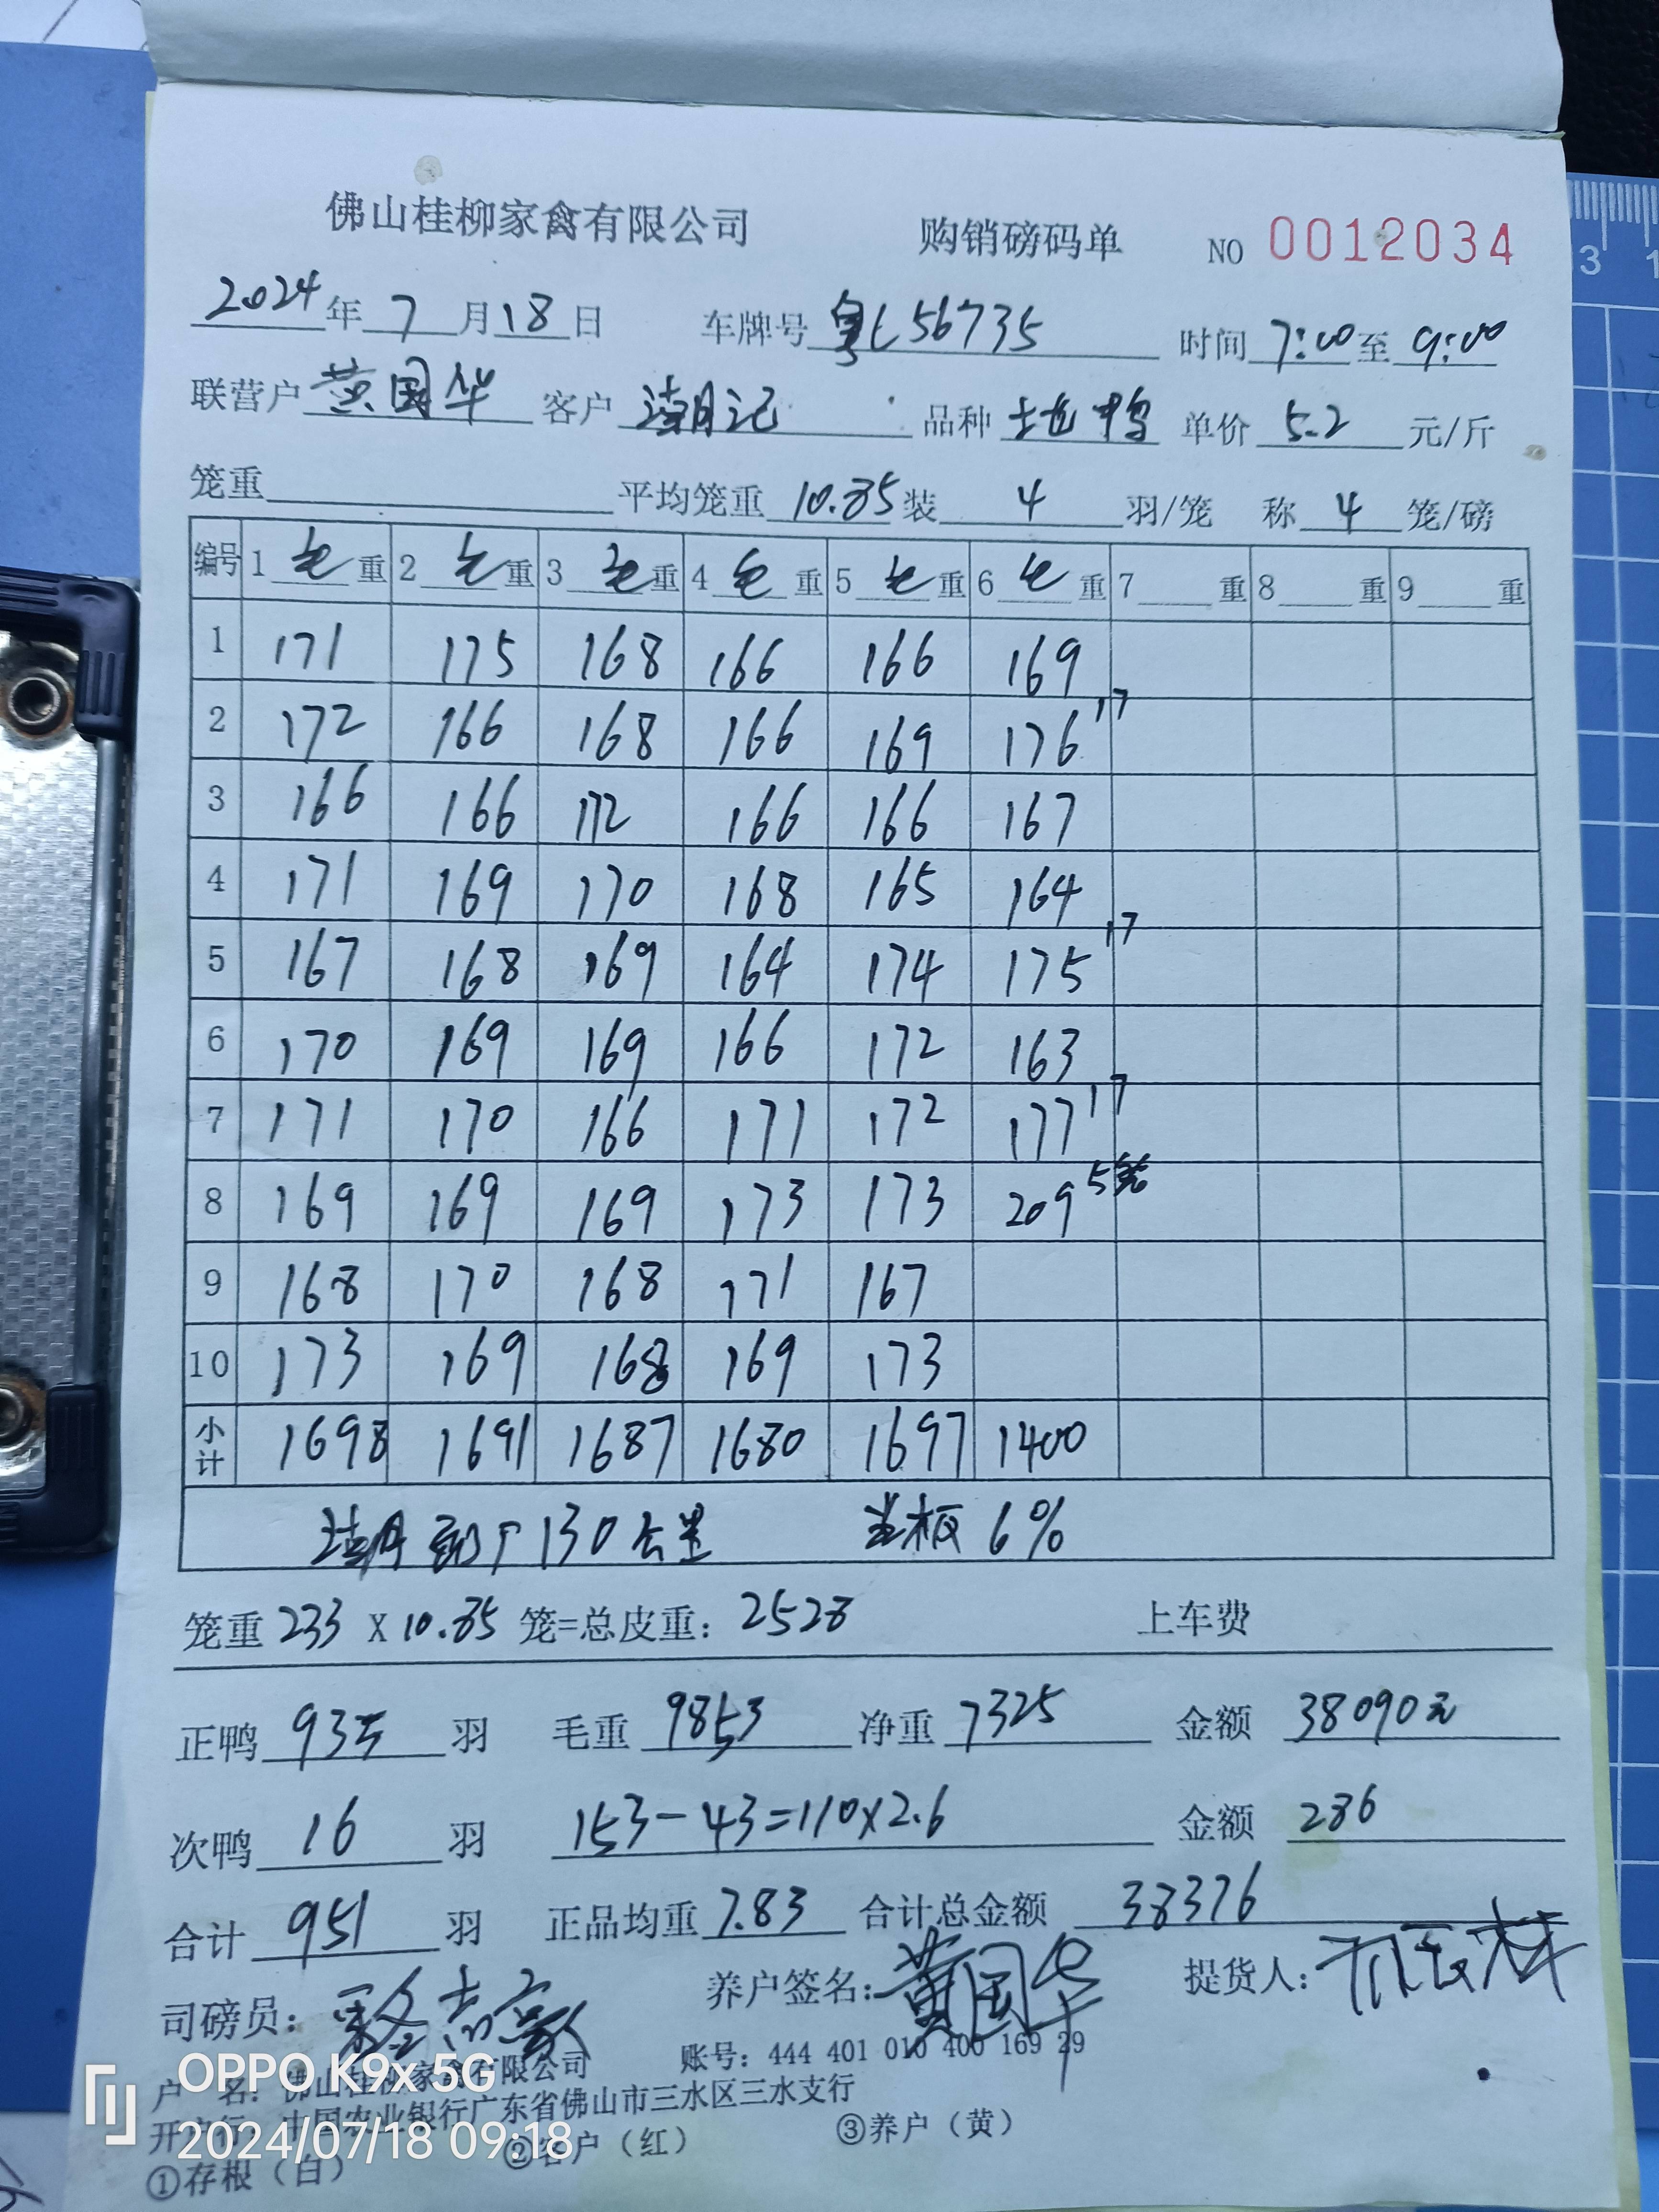 佛山桂柳家禽有限公司 购销磅码单 NO 0012034
2024年7月18日 车牌号 粤L56735 时间 7:00 至 9:00
联营户 黄国华 客户 潮记 品种 土鸭 单价 5.2 元/斤
笼重 平均笼重 10.85 装 4 羽/笼 称 4 笼/磅
编号 1 毛重 2 毛重 3 毛重 4 毛重 5 毛重 6 毛重 7 重 8 重 9 重
1 171 175 168 166 166 169
2 172 166 168 166 169 176 17
3 166 166 172 166 166 167
4 171 169 170 168 165 164
5 167 168 169 164 174 175 17
6 170 169 169 166 172 163
7 171 170 166 171 172 177 17
8 169 169 169 173 173 209 5笼
9 168 170 168 171 167
10 173 169 168 169 173
小计 1698 1691 1687 1680 1697 1400
130公里 6%
笼重 233 X 10.85 笼=总皮重: 2528 上车费
正鸭 935 羽 毛重 9853 净重 7325 金额 38090元
次鸭 16 羽 153-43=110×2.6 金额 286
合计 951 羽 正品均重 7.83 合计总金额 38376
司磅员: 养户签名: 黄国华 提货人:
户 名: 佛山桂柳家禽有限公司 账号: 444 401 010 400 169 29
开户行: 中国农业银行广东省佛山市三水区三水支行
①存根（白） ②客户（红） ③养户（黄）
OPPO K9x 5G
2024/07/18 09:18